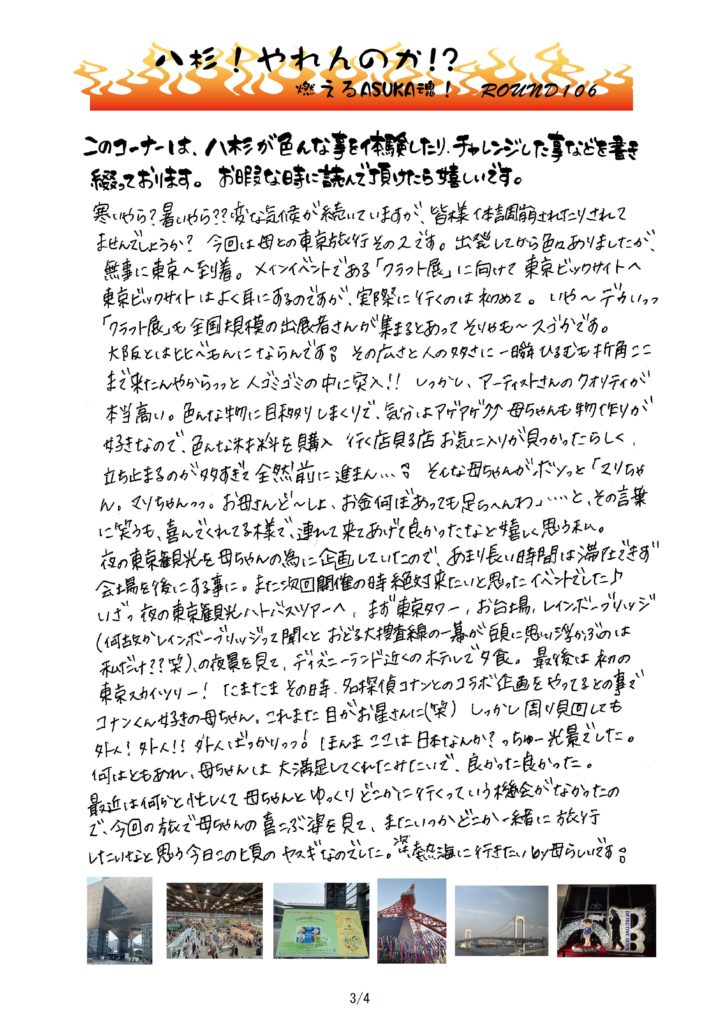 八杉！やれんのか!?
燃えるASUKA魂！ ROUND106
このコーナーは、八杉が色んな事を体験したり、チャレンジした事などを書き
綴っております。 お暇な時に読んで頂けたら嬉しいです。
寒いやら？暑いやら？？変な気候が続いていますが、皆様体調崩されたりされて
ませんでしょうか？ 今回は母との東京旅行その2です。出発してから色々ありましたが、
無事に東京へ到着。 メインイベントである「クラフト展」に向けて東京ビックサイトへ
東京ビックサイトはよく耳にするのですが、実際に行くのは初めて。 いや～デカいっっ
「クラフト展」も全国規模の出展者さんが集まるとあってそりゃも～スゴかです。
大阪とは比べもんにならんです その広さと人の多さに一瞬ひるむも折角ここ
まで来たんやからっっと人ゴミゴミの中に突入!! しっかし、アーティストさんのクオリティが
本当高い。色んな物に目移りしまくりで、気分はアゲアゲ↗ 母ちゃんも物作りが
好きなので、色んな材料を購入 行く店見る店お気に入りが見つかったらしく、
立ち止まるのが多すぎて全然前に進まん… そんな母ちゃんがボソっと「マリちゃ
ん。マリちゃんっっ。お母さんど～しよ、お金何ぼあっても足らへんわ」……と、その言葉
に笑うも、喜んでくれてる様で、連れて来てあげて良かったなと嬉しく思う私。
夜の東京観光を母ちゃんの為に企画していたので、あまり長い時間は滞在できず
会場を後にする事に。また次回開催の時絶対来たいと思ったイベントでした♪
いざっ夜の東京観光ハトバスツアーへ。まず東京タワー、お台場、レインボーブリッジ
(何故かレインボーブリッジって聞くとおどる大捜査線の一幕が頭に思い浮かぶのは
私だけ？？笑)、の夜景を見て、ディズニーランド近くのホテルで夕食。 最後は初の
東京スカイツリー！ たまたまその時、名探偵コナンとのコラボ企画をやってるとの事で
コナンくん好きの母ちゃん。これまた目がお星さんに(笑) しっかし周り見回しても
外人！外人!! 外人ばっかりっっ！ ほんまここは日本なんか？っちゅー光景でした。
何はともあれ、母ちゃんは大満足してくれたみたいで、良かった良かった。
最近は何かと忙しくて母ちゃんとゆっくりどこかに行くっていう機会がなかったの
で、今回の旅で母ちゃんの喜こぶ姿を見て、またいつかどこか一緒に旅行
したいなと思う今日この頃のヤスギなのでした。 熱海に行きたいby母らしいです
DETECTIVE
3/4